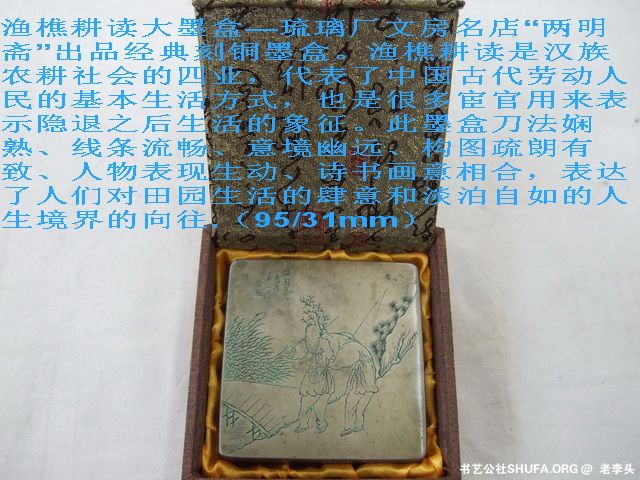 渔樵耕读大墨盒—琉璃厂文房名店“两明
斋”出品经典刻铜墨盒。渔樵耕读是汉族
农耕社会的四业，代表了中国古代劳动人
民的基本生活方式，也是很多宦官用来表
示隐退之后生活的象征。此墨盒刀法娴
熟、线条流畅、意境幽远、构图疏朗有
致、人物表现生动、诗书画意相合，表达
了人们对田园生活的肆意和淡泊自如的人
生境界的向往.（95/31mm）
书艺公社SHUFA.ORG @ 老李头